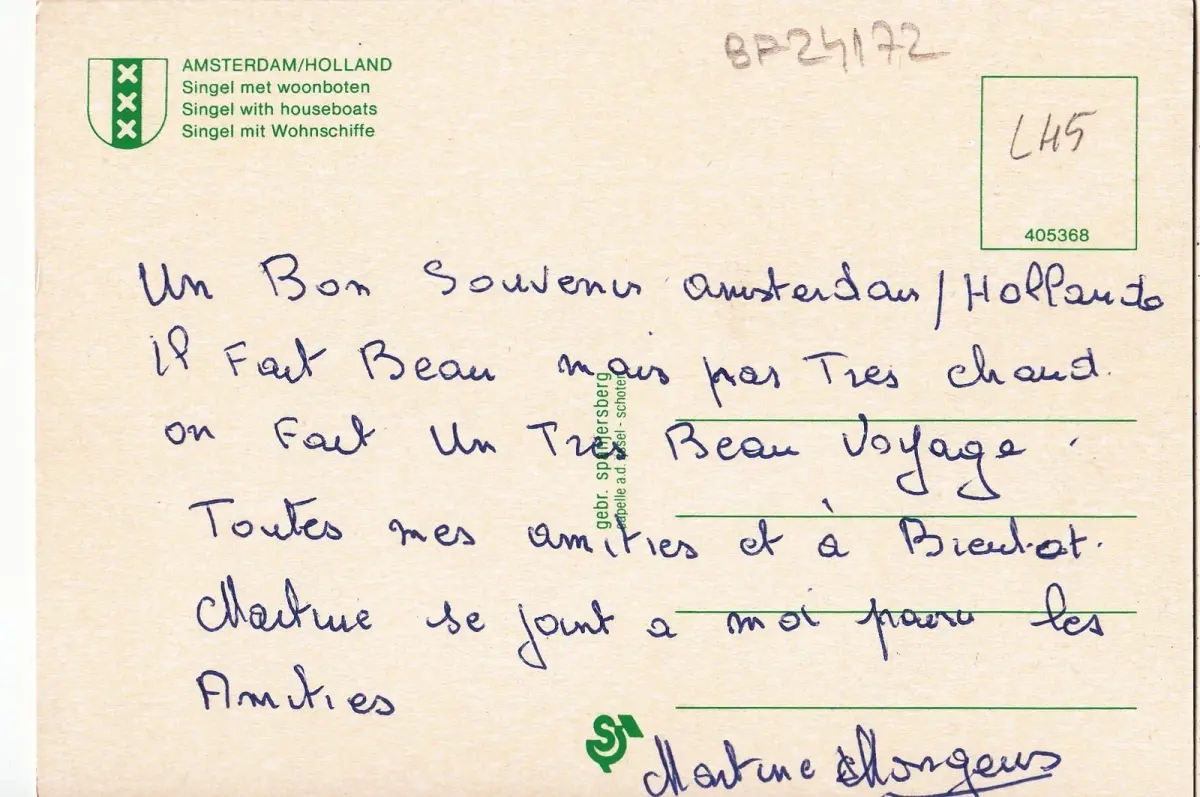 BP24172
AMSTERDAM/HOLLAND
Singel met woonboten
Singel with houseboats
Singel mit Wohnschiffe
LH5
405368
Un Bon Souvenir amsterdam/Hollande
il Fait Beau mais pas Tres chaud.
on Fait Un Tres Beau Voyage.
Toutes mes amities et à Bientot.
Martine se joint a moi pour les
Amities
gebr. spanjersberg
capelle a.d. ijssel - schoten
Martine